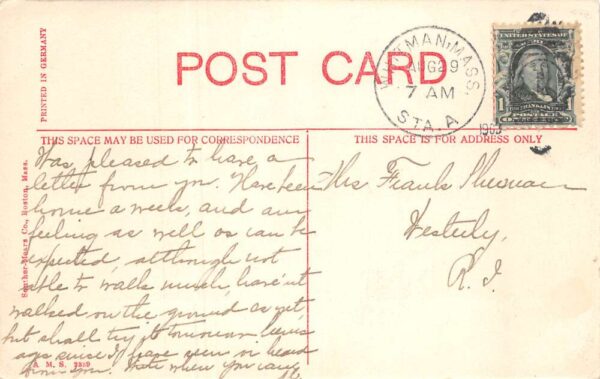 POST CARD
PRINTED IN GERMANY
WHITMAN, MASS.
AUG 29
7 AM
STA. A.
UNITED STATES OF
1
FRANKLIN
POSTAGE
THIS SPACE MAY BE USED FOR CORRESPONDENCE
THIS SPACE IS FOR ADDRESS ONLY
Was pleased to have a
letter from you. Have been
home a week, and am
feeling as well as can be
expected, although not
able to walk much, have'nt
walked on the ground as yet,
but shall try it tomorrow. Seems
ages since I have seen or heard
from you. Write when you can.
Mrs Frank Sherman
Westerly,
R. I.
Souther-Mears Co., Boston, Mass.
A. M. S. 2359